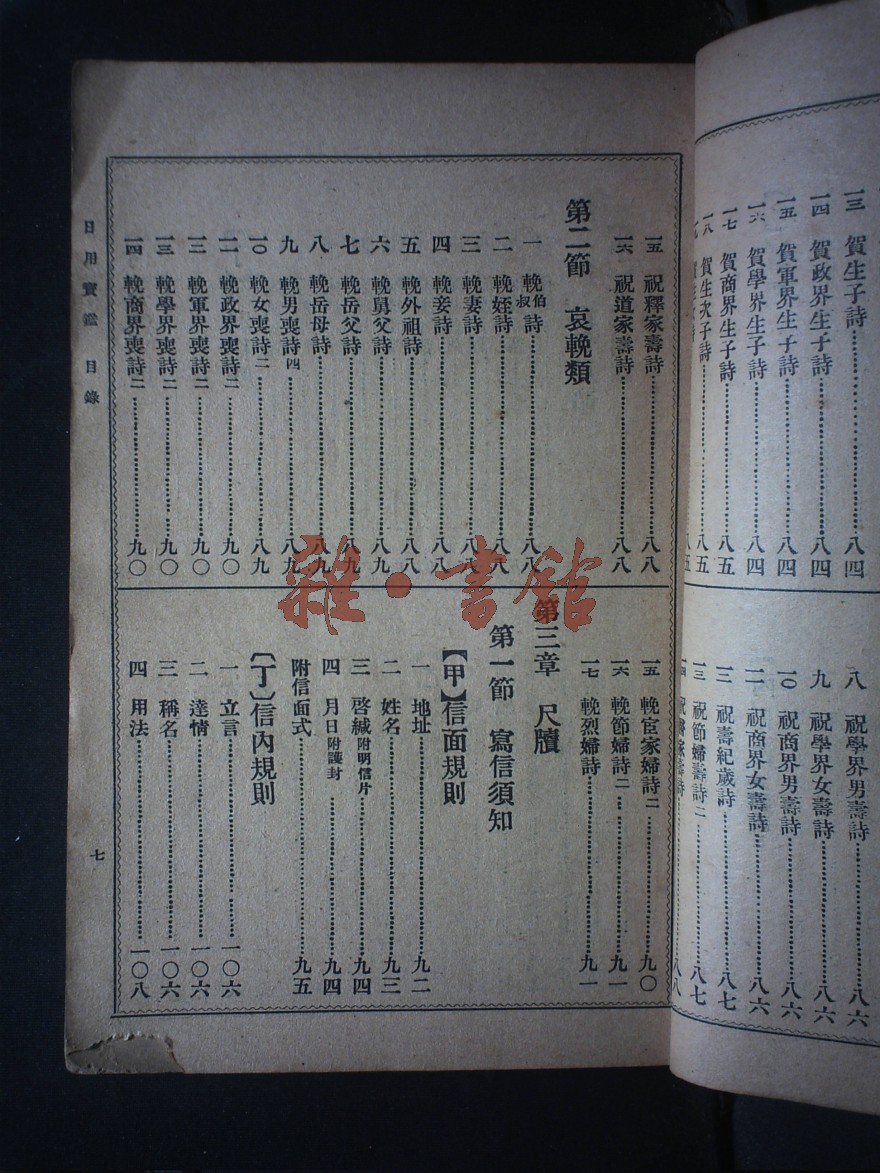 一三 賀生子詩……八四
一四 賀政界生子詩……八四
一五 賀軍界生子詩……八四
一六 賀學界生子詩……八四
一七 賀商界生子詩……八五
一八 賀生次子詩……八五
八 祝學界男壽詩……八六
九 祝學界女壽詩……八六
一〇 祝商界男壽詩……八六
一一 祝商界女壽詩……八六
一二 祝壽紀歲詩……八七
一三 祝節婦壽詩二……八七
一五 祝釋家壽詩……八八
一六 祝道家壽詩……八八
第二節 哀輓類
一 輓伯叔詩……八八
二 輓姪詩……八八
三 輓妻詩……八八
四 輓妾詩……八八
五 輓外祖詩……八八
六 輓舅父詩……八九
七 輓岳父詩……八九
八 輓岳母詩……八九
九 輓男喪詩四……八九
一〇 輓女喪詩二……八九
一一 輓政界喪詩二……九〇
一二 輓軍界喪詩二……九〇
一三 輓學界喪詩二……九〇
一四 輓商界喪詩二……九〇
一五 輓宦家婦詩二……九〇
一六 輓節婦詩二……九一
一七 輓烈婦詩……九一
第三章 尺牘
第一節 寫信須知
【甲】信面規則
一 地址……九二
二 姓名……九三
三 啓緘附明信片……九四
四 月日附護封……九四
附信面式……九五
〔丁〕信內規則
一 立言……一〇六
二 達情……一〇六
三 稱名……一〇六
四 用法……一〇八
日用寶鑑 目錄
七
雜·書館